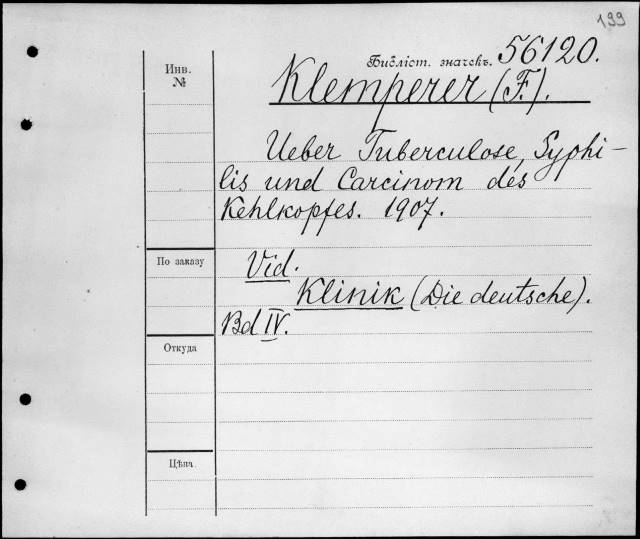 199
Инв.
№
Библіот. значекъ. 56120.
Klemperer (F.).
Ueber Tuberculose, Syphi-
lis und Carcinom des
Kehlkopfes. 1907.
По заказу
Vid.
Klinik (Die deutsche).
Bd IV.
Откуда
Цѣна